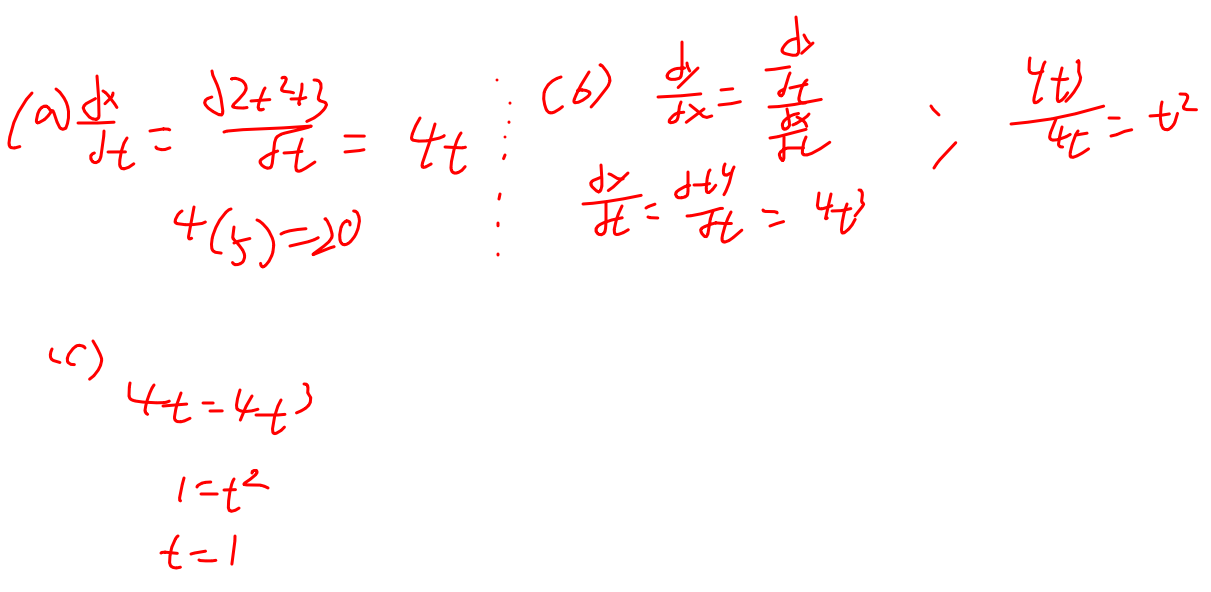 (a) dx/dt = d2t²+3/dt = 4t
4(5)=20
(b) dy/dx = dy/dt / dx/dt ; 4t³/4t = t²
dy/dt = dt⁴/dt = 4t³
(c)
4t = 4t³
1 = t²
t = 1